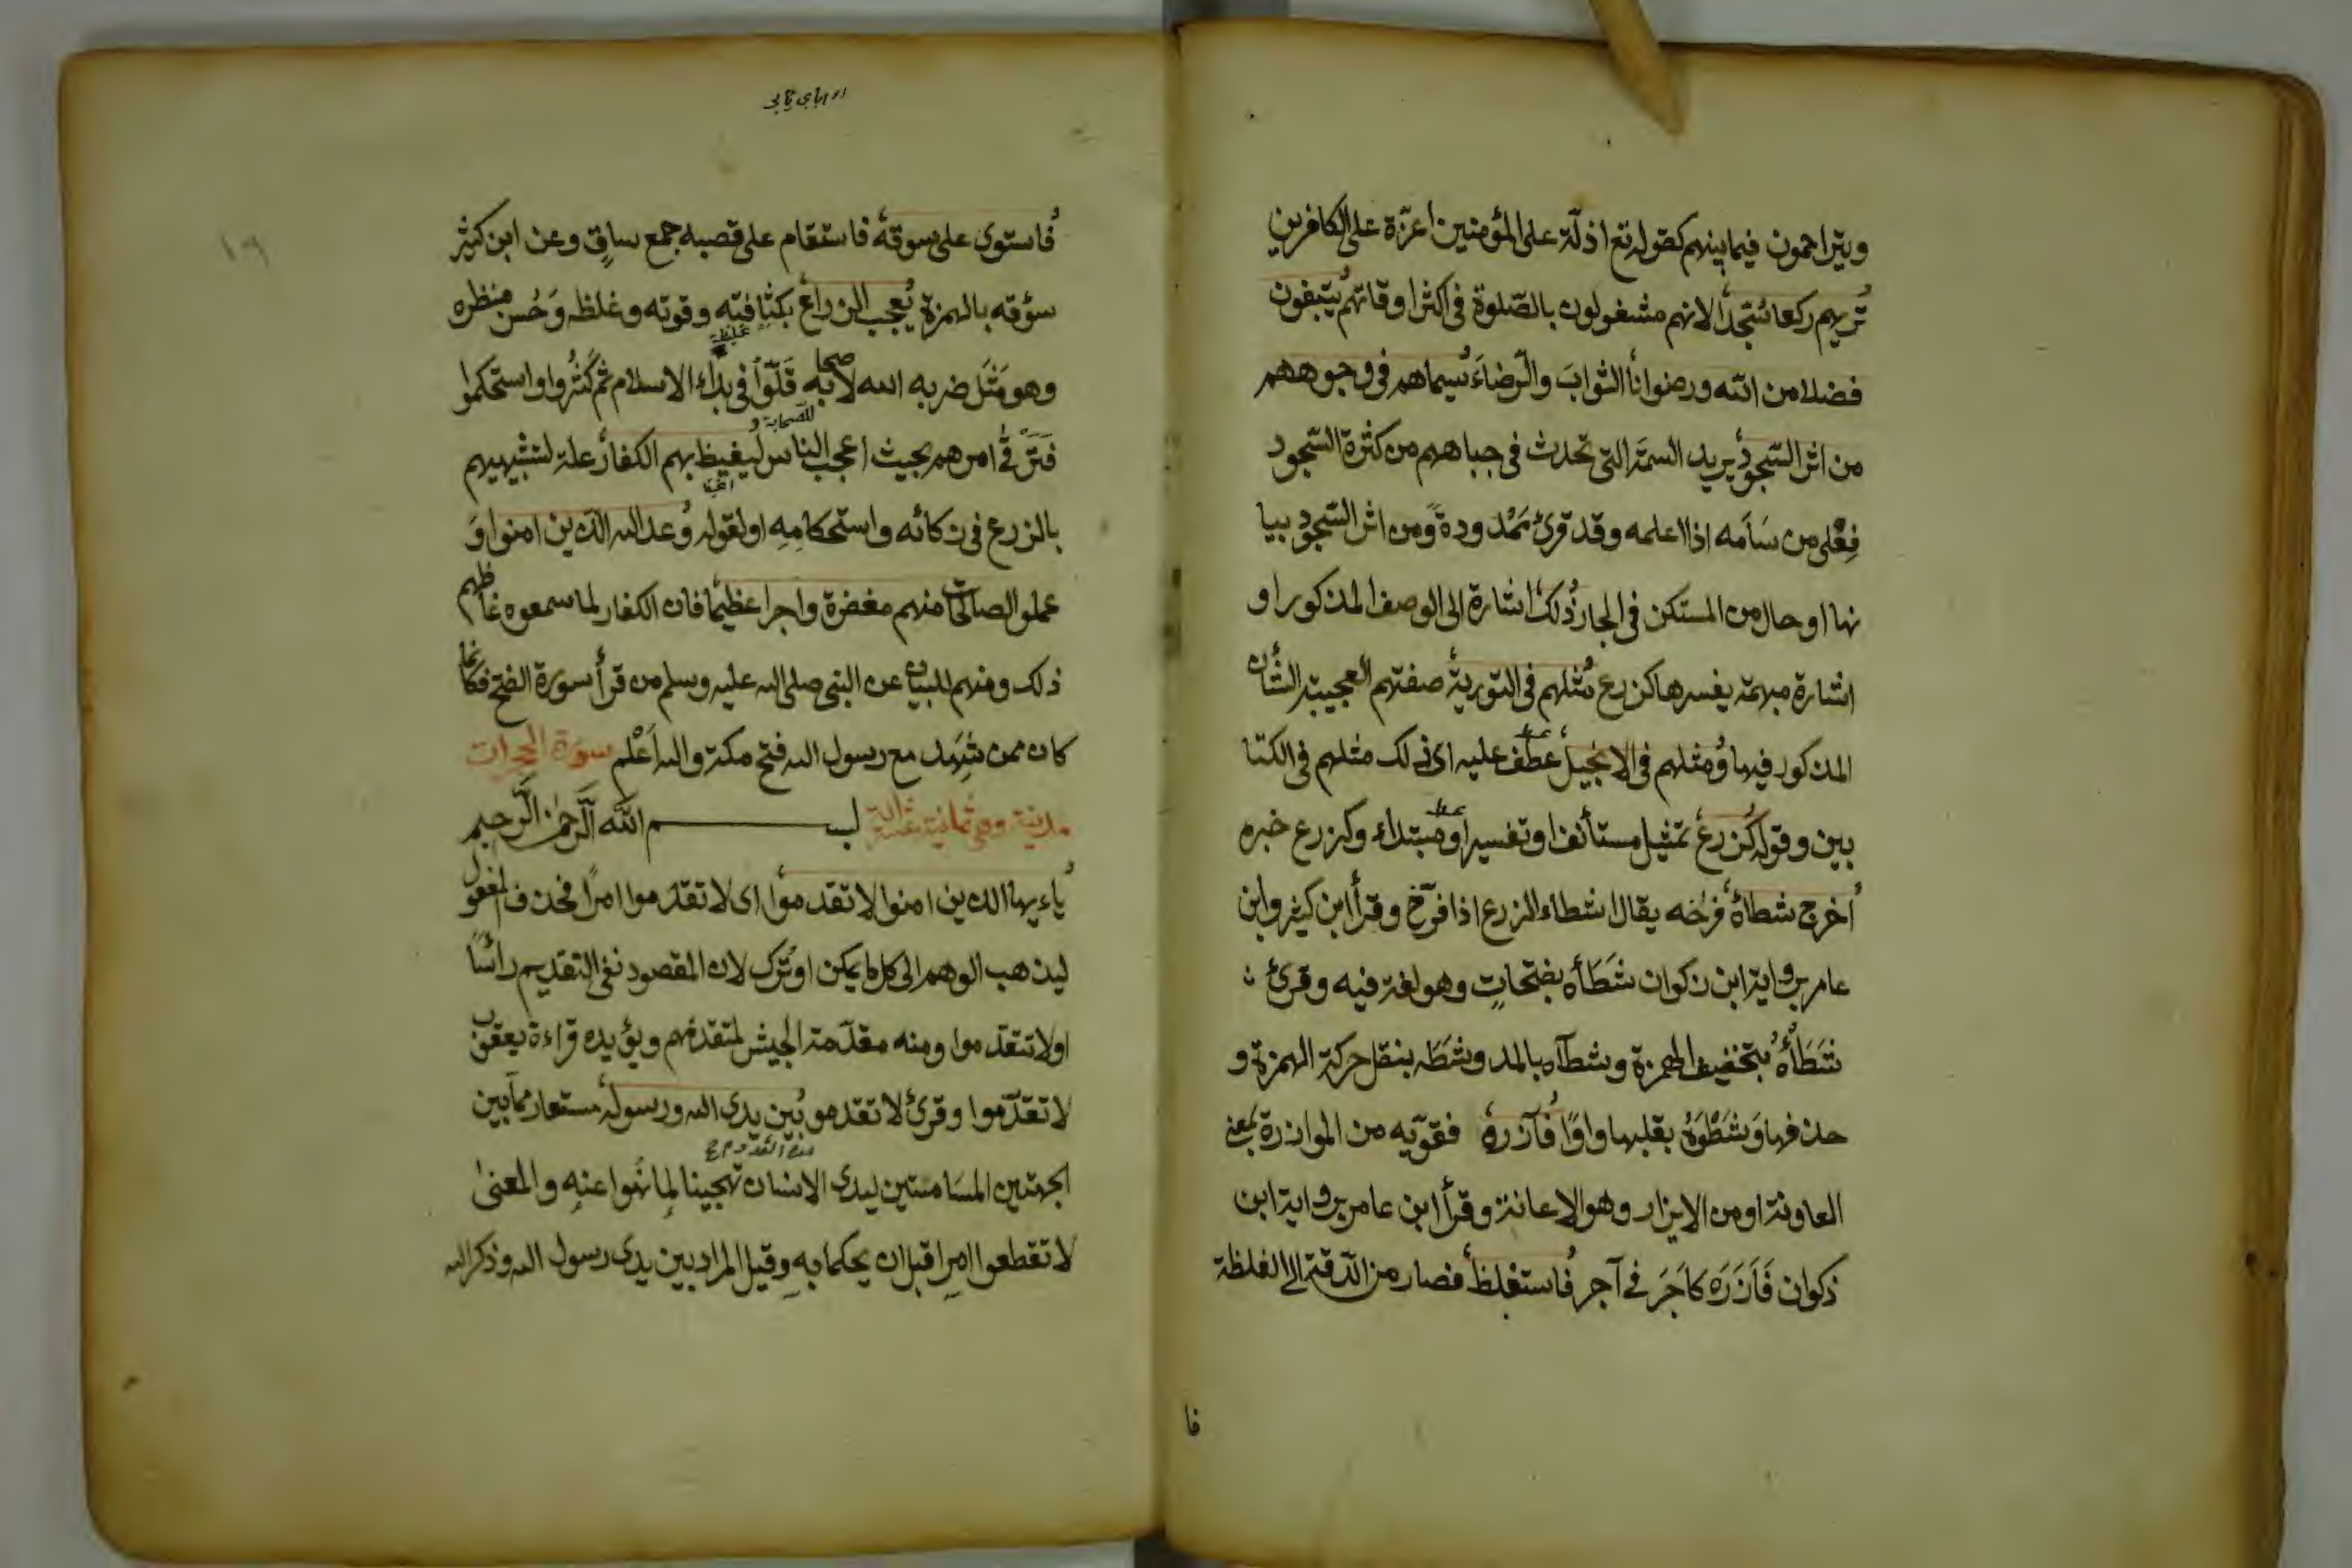 ويتراحمون فيما بينهم كقوله تع اذلة على المؤمنين اعزة على الكافرين
تريهم ركعا سجدا لانهم مشغولون بالصلوة في اكثر اوقاتهم يبتغون
فضلا من الله ورضوانا الثواب والرضاء سيماهم في وجوههم
من اثر السجود يريد السمة التي تحدث في جباههم من كثرة السجود
فعلى من سامه اذا اعلمه وقد قرئ ممدودة ومن اثر السجود بيا
نها او حال من المستكن في الجار ذلك اشارة الى الوصف المذكور او
اشارة مبهمة يفسرها كزرع مثلهم في التورية صفتهم العجيبة الشان
المذكور فيها ومثلهم في الانجيل عطف عليه اى ذلك مثلهم في الكتا
بين وقوله كزرع تمثيل مستأنف او تفسير او مبتداء وكزرع خبره
اخرج شطاه فرخه يقال اشطاء الزرع اذا فرّخ وقرأ ابن كثير وابن
عامر برواية ابن ذكوان شَطَأه بفتحاتٍ وهو لغة فيه وقرئ
شَطَأهُ بتخفيف الهمزة وشطآه بالمد وشَطَه بنقل حركة الهمزة و
حذفها وَشَطْوَهُ بقلبها واوًا فآزره فقوّيه من الموازرة بمعنى
العاونة او من الايزار وهو الاعانة وقرأ ابن عامر برواية ابن
ذكوان فَاَزَرَه كاَجَرَ في آجر فاستغلظ فصار من الدقة الى الغلظة
فا
فاستوى على سوقه فاستقام على قصبه جمع ساقٍ وعن ابن كثير
سؤقه بالهمزة يعجب الزراع بكثافته وقوته وغلظه وَحُسن منظره
وهو مَثَل ضربه الله لاصحابه قَلّوا في بداء الاسلام ثم كَثُروا واستحكموا
فترقى امرهم بحيث اعجب الناس ليغيظ بهم الكفار علة لتشبيههم
بالزرع في زكائه واستحكامِه او لقوله وعد الله الذين امنوا وَ
عملو الصالحات منهم مغفرة واجرا عظيما فان الكفار لما سمعوه غاظهم
ذلك ومنهم للبيان عن النبي صلى الله عليه وسلم من قرأ سورة الفتح فكانما
كان ممن شَهِد مع رسول الله فتح مكة والله اَعْلم سورة الحجرات
مدنية وهي ثمانية عشرة اية بسم الله الرحمن الرحيم
ياءيها الذين امنوا لا تقدموا اى لا تقدّموا امرًا فحذف المفعول
ليذهب الوهم الى كل ما يمكن او تُرك لان المقصود نفى التقديم رائسًا
او لا تتقدّموا ومنه مقدّمة الجيش لمتقدمهم ويؤيده قراءة يعقوب
لا تقدّموا وقرئ لا تقدمو بين يدى الله ورسوله مستعار مما بين
الجهتين المسَامتتين ليدى الانسان تهجينا لِما نُهوا عنه والمعنى
لا تقطعوا امرا قبل ان يحكما به وقيل المراد بين يدى رسول الله وذكر الله